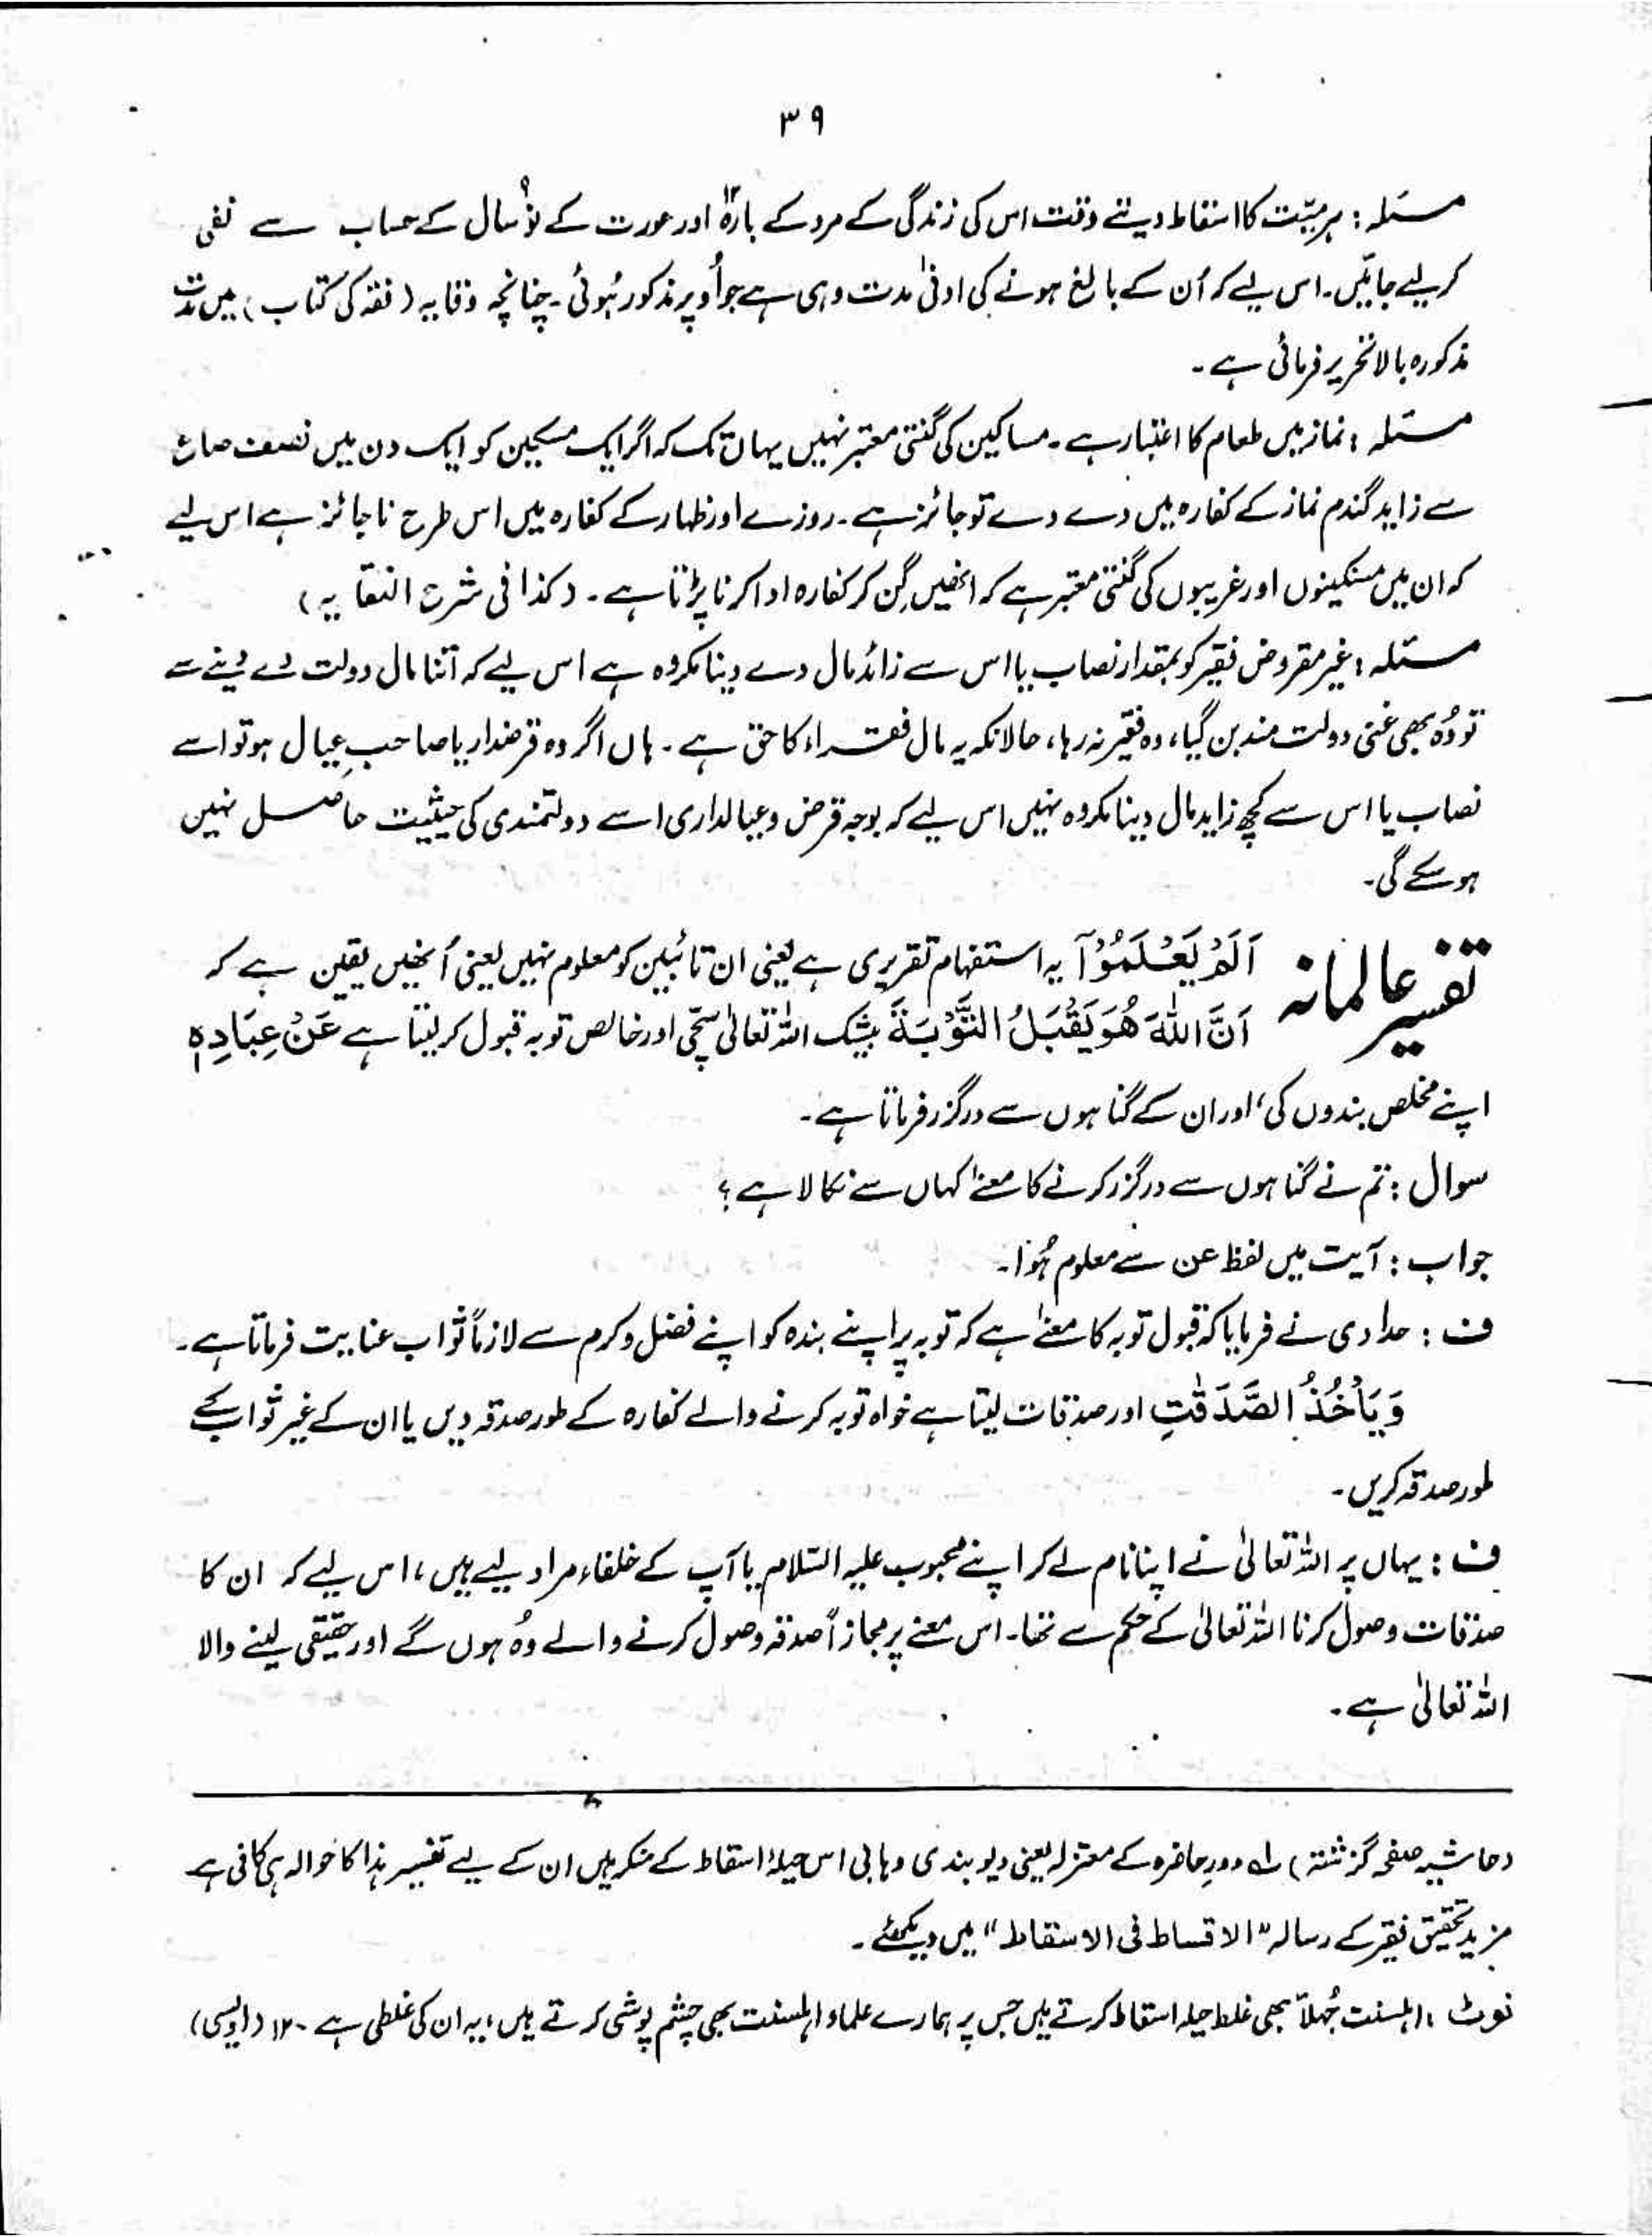 ۳۹
مسئلہ : ہر میّت کا اسقاط دیتے وقت اس کی زندگی کے مرد کے بارہ۱۲ اور عورت کے نو۹ سال کے حساب سے نفی
کر لیے جائیں۔ اس لیے کہ اُن کے بالغ ہونے کی ادنیٰ مدت وہی ہے جو اُوپر مذکور ہُوئی۔ چنانچہ وقایہ (فقہ کی کتاب) میں مدت
مذکورہ بالا تحریر فرمائی ہے۔
مسئلہ : نماز میں طعام کا اعتبار ہے۔ مساکین کی گنتی معتبر نہیں یہاں تک کہ اگر ایک مسکین کو ایک دن میں نصف صاع
سے زاید گندم نماز کے کفارہ میں دے دے تو جائز ہے۔ روزے اور ظہار کے کفارہ میں اس طرح ناجائز ہے اس لیے
کہ ان میں مسکینوں اور غریبوں کی گنتی معتبر ہے کہ انھیں گِن کر کفارہ ادا کرنا پڑتا ہے۔ (کذا فی شرح النقایہ)
مسئلہ : غیر مقروض فقیر کو بمقدار نصاب یا اس سے زائد مال دے دینا مکروہ ہے اس لیے کہ اتنا مال دولت دے دینے سے
تو وُہ بھی غنی دولت مند بن گیا، وہ فقیر نہ رہا، حالانکہ یہ مال فقراء کا حق ہے۔ ہاں اگر وہ قرضدار یا صاحبِ عیال ہو تو اسے
نصاب یا اس سے کچھ زاید مال دینا مکروہ نہیں اس لیے کہ بوجہ قرض و عیالداری اسے دولتمندی کی حیثیت حاصل نہیں
ہو سکے گی۔
تفسیر عالمانہ اَلَمْ یَعْلَمُوْٓا یہ استفہام تقریری ہے یعنی ان تائبین کو معلوم نہیں یعنی اُنھیں یقین ہے کہ
اَنَّ اللّٰہَ ھُوَ یَقْبَلُ التَّوْبَۃَ بیشک اللہ تعالیٰ سچّی اور خالص توبہ قبول کر لیتا ہے عَنْ عِبَادِہٖ
اپنے مخلص بندوں کی، اور ان کے گناہوں سے درگزر فرماتا ہے۔
سوال : تم نے گناہوں سے درگزر کرنے کا معنےٰ کہاں سے نکالا ہے ؟
جواب : آیت میں لفظ عن سے معلوم ہُوا۔
ف : حدادی نے فرمایا کہ قبول توبہ کا معنےٰ ہے کہ توبہ پر اپنے بندہ کو اپنے فضل و کرم سے لازماً ثواب عنایت فرماتا ہے۔
وَیَاْخُذُ الصَّدَقٰتِ اور صدقات لیتا ہے خواہ توبہ کرنے والے کفارہ کے طور صدقہ دیں یا ان کے غیر ثواب کے
طور صدقہ کریں۔
ف : یہاں پر اللہ تعالیٰ نے اپنا نام لے کر اپنے محبوب علیہ السّلام یا آپ کے خلفاء مراد لیے ہیں، اس لیے کہ ان کا
صدقات وصول کرنا اللہ تعالیٰ کے حکم سے تھا۔ اس معنے پر مجازاً صدقہ وصول کرنے والے وُہ ہوں گے اور حقیقی لینے والا
اللہ تعالیٰ ہے۔
(حاشیہ صفحہ گزشتہ) لہ دورِ حاضرہ کے معتزلہ یعنی دیوبندی وہابی اس حیلۂ اسقاط کے منکر ہیں ان کے لیے تفسیر ہذا کا حوالہ ہی کافی ہے
مزید تحقیق فقیر کے رسالہ "الاقساط فی الاسقاط" میں دیکھئے۔
نوٹ : اہلسنت جُہلاً بھی غلط حیلہ اسقاط کرتے ہیں جس پر ہمارے علماء اہلسنت بھی چشم پوشی کرتے ہیں، یہ ان کی غلطی ہے۔ ۱۲ (اویسی)